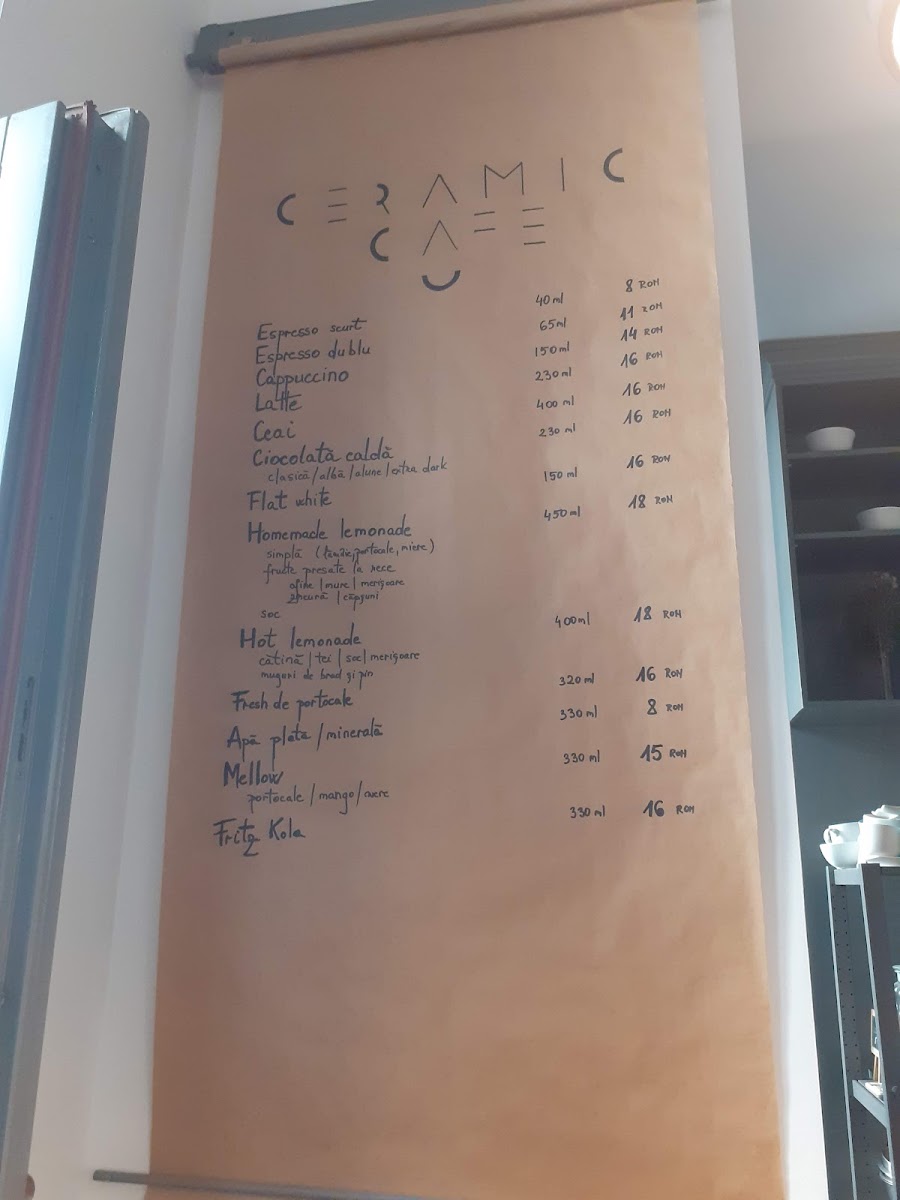 CERAMIC
CAFE
Espresso scurt 40ml 8 RON
Espresso dublu 65ml 11 RON
Cappuccino 150ml 14 RON
Latte 230ml 16 RON
Ceai 400ml 16 RON
Ciocolată caldă 230ml 16 RON
clasică/albă/alune/extra dark
Flat white 150ml 16 RON
Homemade lemonade 450ml 18 RON
simplă (lămâie, portocale, miere)
fructe presate la rece
afine | mure | merișoare
zmeură | căpșuni
soc
Hot lemonade 400ml 18 RON
cătină | tei | soc | merișoare
muguri de brad și pin
Fresh de portocale 320ml 16 RON
Apă plată/minerală 330ml 8 RON
Mellow 330ml 15 RON
portocale/mango/
Fritz Kola 330ml 16 RON